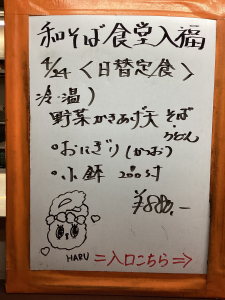 和そば食堂入福
4/24 <日替定食>
冷・温)
野菜かきあげ天 そば・うどん
・おにぎり(かつお)
・小鉢 付
¥880.-
HARU
=入口こちら⇒